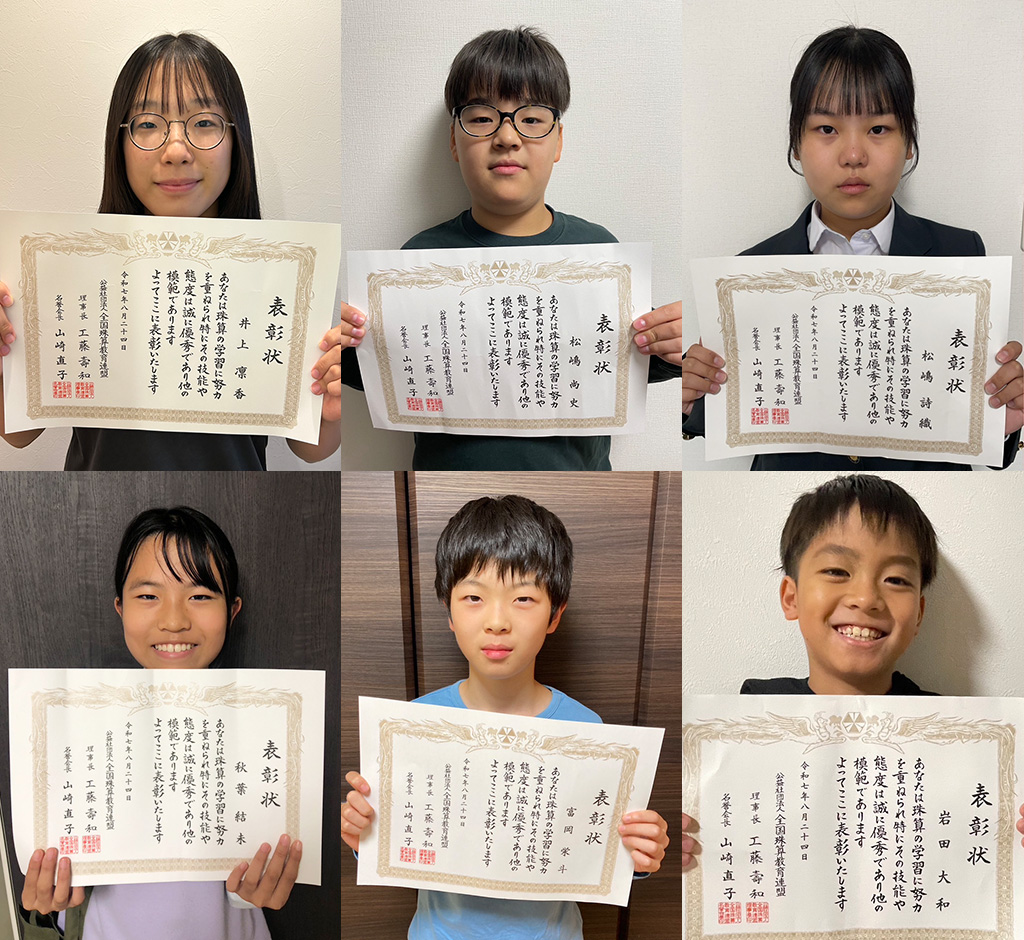 表彰状
井上凛香
あなたは珠算の学習に努力
を重ねられ特にその技能や
態度は誠に優秀であり他の
模範であります
よってここに表彰いたします
令和七年八月二十四日
公益社団法人全国珠算教育連盟
理事長 工藤壽和
名誉会長 山崎直子
表彰状
松嶋尚史
あなたは珠算の学習に努力
を重ねられ特にその技能や
態度は誠に優秀であり他の
模範であります
よってここに表彰いたします
令和七年八月二十四日
公益社団法人全国珠算教育連盟
理事長 工藤壽和
名誉会長 山崎直子
表彰状
松嶋詩織
あなたは珠算の学習に努力
を重ねられ特にその技能や
態度は誠に優秀であり他の
模範であります
よってここに表彰いたします
令和七年八月二十四日
公益社団法人全国珠算教育連盟
理事長 工藤壽和
名誉会長 山崎直子
表彰状
秋葉結未
あなたは珠算の学習に努力
を重ねられ特にその技能や
態度は誠に優秀であり他の
模範であります
よってここに表彰いたします
令和七年八月二十四日
公益社団法人全国珠算教育連盟
理事長 工藤壽和
名誉会長 山崎直子
表彰状
富岡栄斗
あなたは珠算の学習に努力
を重ねられ特にその技能や
態度は誠に優秀であり他の
模範であります
よってここに表彰いたします
令和七年八月二十四日
公益社団法人全国珠算教育連盟
理事長 工藤壽和
名誉会長 山崎直子
表彰状
岩田大和
あなたは珠算の学習に努力
を重ねられ特にその技能や
態度は誠に優秀であり他の
模範であります
よってここに表彰いたします
令和七年八月二十四日
公益社団法人全国珠算教育連盟
理事長 工藤壽和
名誉会長 山崎直子